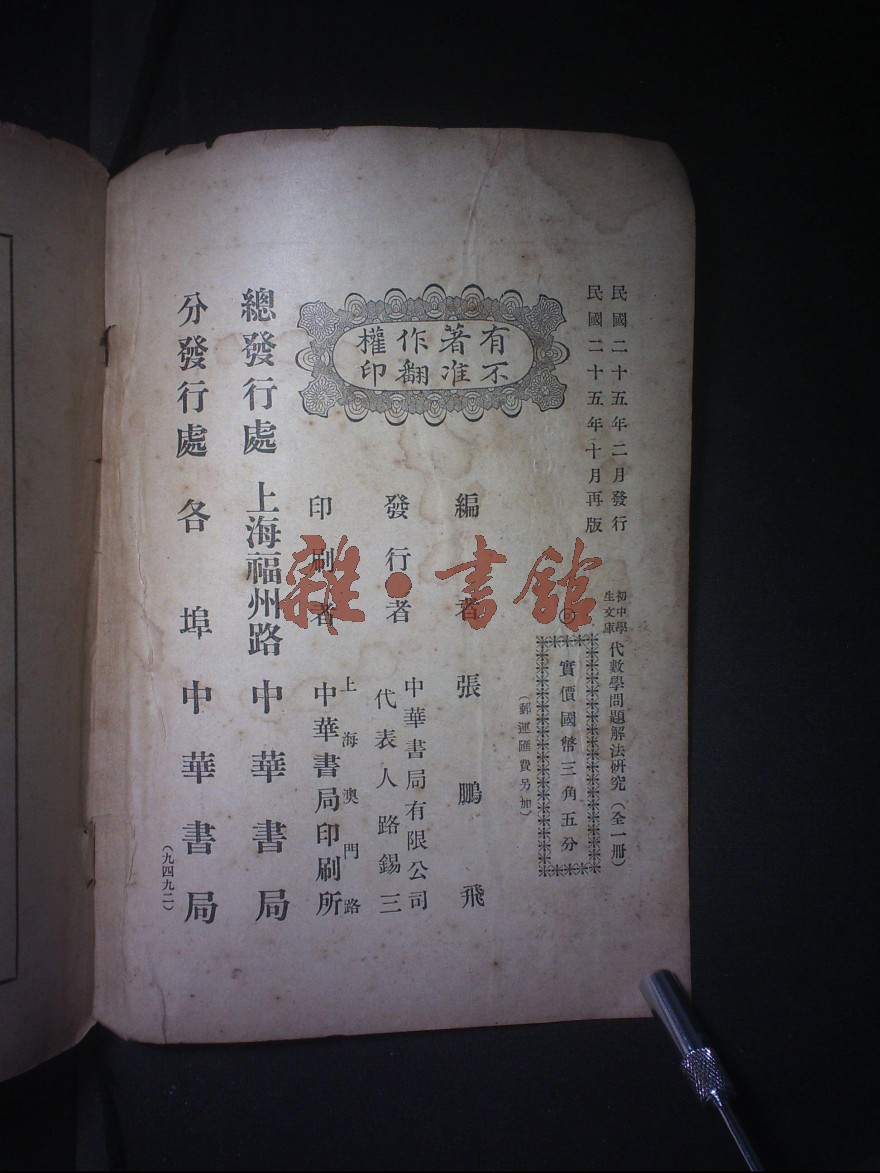 民國二十五年二月發行
民國二十五年十月再版
初中學
生文庫
代數學問題解法研究（全一冊）
實價國幣三角五分
（郵運匯費另加）
有著作權
不准翻印
編者 張鵬飛
發行者 中華書局有限公司
代表人路錫三
印刷者 上海澳門路
中華書局印刷所
總發行處 上海福州路 中華書局
分發行處 各埠中華書局
（九四九二）
雜·書館